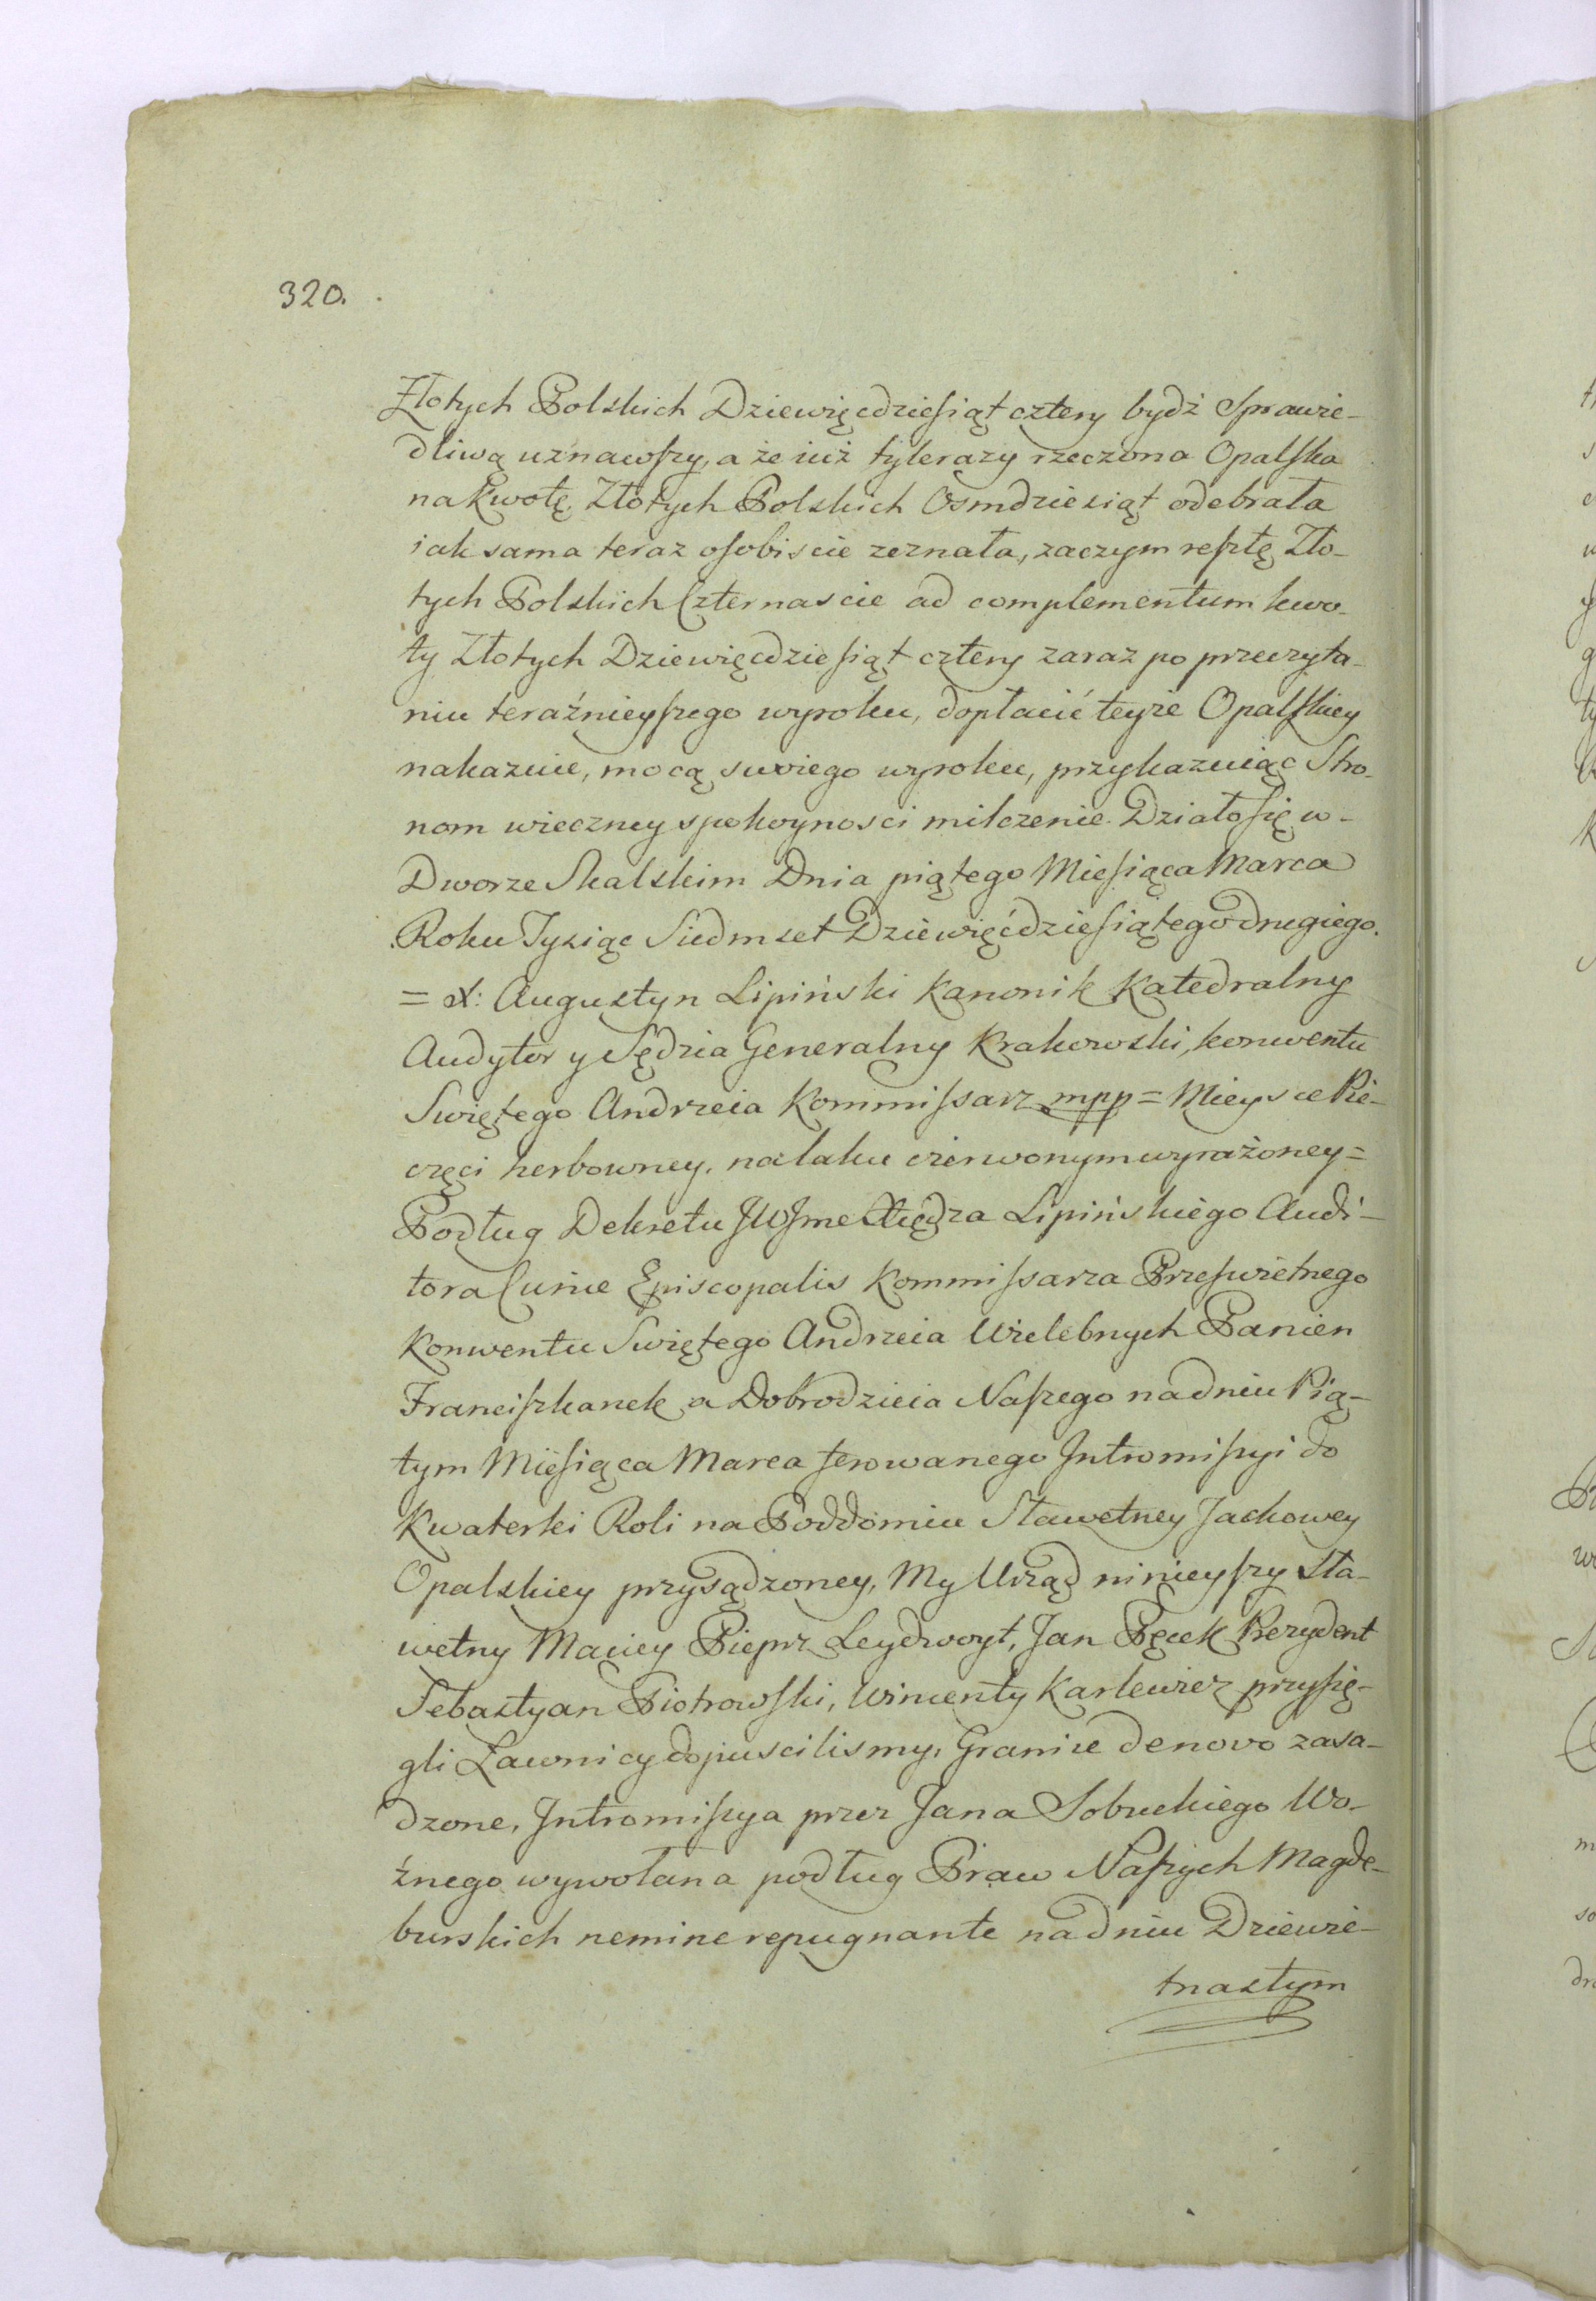 320.
Złotych Polskich Dziewięcdziesiąt cztery bydź Sprawie-
dliwą uznawszy, a że iuż tylerazy rzeczona Opalska
na kwotę Złotych Polskich Osmdziesiąt odebrała
iak sama teraz osobiscie zeznała, zaczym resztę Zło-
tych Polskich Czternascie ad complementum kwo-
ty Złotych Dziewięcdziesiąt cztery zaraz po przeczyta-
niu teraźnieyszego wyroku, dopłacić teyże Opalskiey
nakazuie, mocą swoiego wyroku, przykazuiąc Stro-
nom wieczney spokoynosci milczenie. Działo się w-
Dworze Skalskim Dnia piątego Miesiąca Marca
Roku Tysiąc Siedmset Dziewięćdziesiątego drugiego.
= X: Augustyn Lipiński Kanonik Katedralny
Audytor y Sędzia Generalny Krakowski, konwentu
Swiętego Andrzeia Kommissarz mpp = Mieysce Pie-
częci herbowney, na laku czerwonym wyrażoney =
Podług Dekretu JWJmc Xiędza Lipińskiego Audi-
tora Curiæ Episcopalis Kommissarza Przeswietnego
Konwentu Swiętego Andrzeia Wielebnych Panien
Franciszkanek a Dobrodzieia Naszego na dniu Pią-
tym Miesiąca Marca ferowanego Intromissyi do
Kwaterki Roli na Poddomiu Sławetney Jackowey
Opalskiey przysądzoney, My Urząd ninieyszy Sła-
wetny Maciey Pieprz Leydwoyt, Jan Pęcek Prezydent
Sebastyan Piotrowski, Wincenty Karlewicz przysię-
gli Ławnicy dopuscilismy, Granice denovo zasa-
dzone, Intromissya przez Jana Sobuckiego Wo-
źnego wywołana podług Praw Naszych Magde-
burskich nemine repugnante na dniu Dziewię-
tnastym